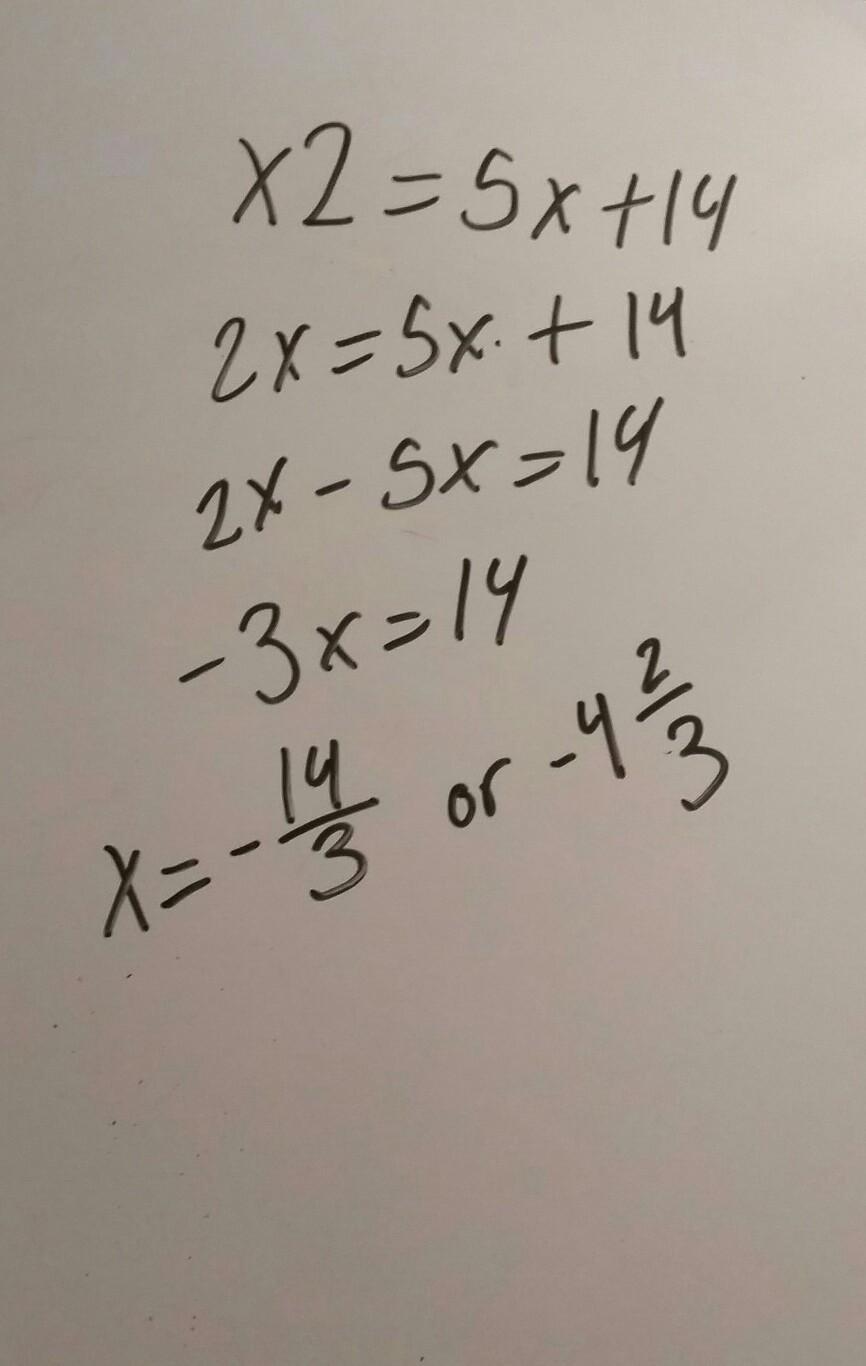 x2 = 5x + 14
2x = 5x + 14
2x - 5x = 14
-3x = 14
x = - 14/3 or -4 2/3